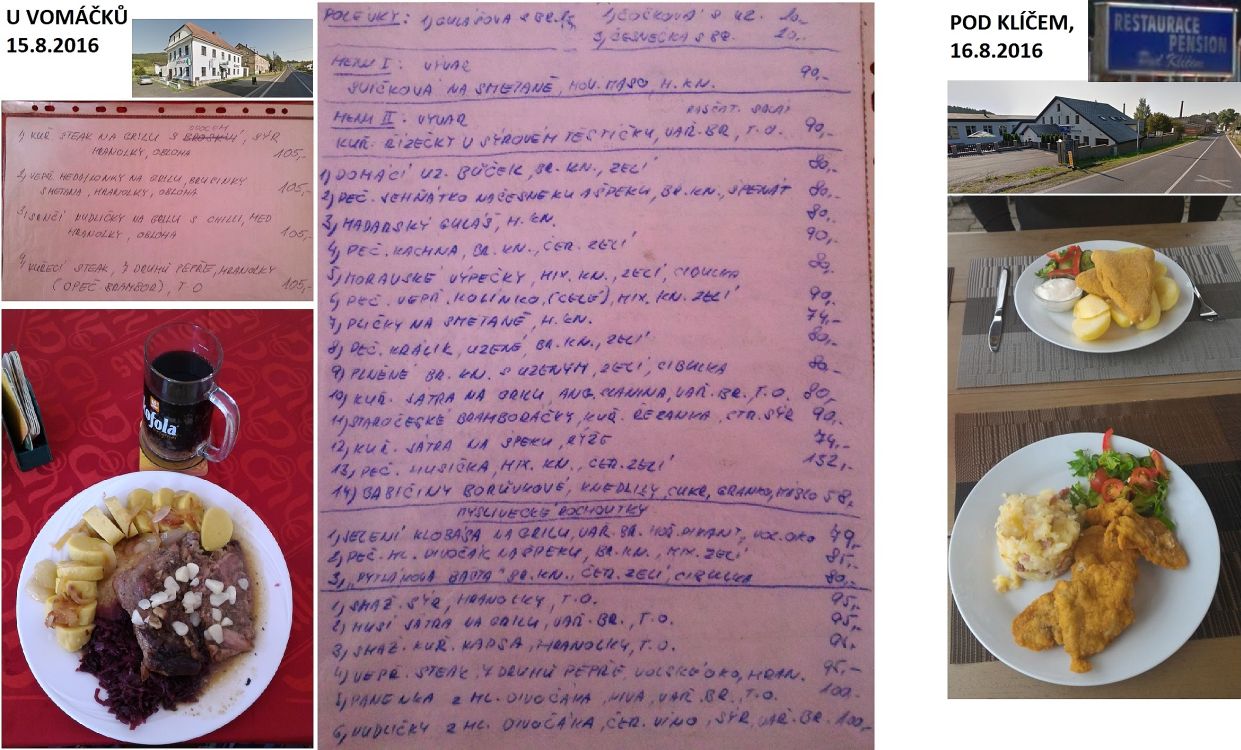 U VOMÁČKŮ
15.8.2016
1) KUŘ. STEAK NA GRILU S OVOCEM, SÝR,
HRANOLKY, OBLOHA 105,-
2) VEPŘ. MEDAILONKY NA GRILU, BRUSINKY
SMETANA, HRANOLKY, OBLOHA 105,-
3) NUDLIČKY NA GRILU S CHILLI, MED
HRANOLKY, OBLOHA 105,-
4) KUŘECÍ STEAK, 7 DRUHŮ PEPŘE, HRANOLKY
(OPEČ. BRAMBOR), T.O 105,-
ofola
POLÉVKY: 1) GULÁŠOVÁ S BR. 2) ČOČKOVÁ S UZ. 20,-
3) ČESNEČKA S BR. 20,-
MENU I: VÝVAR
SVÍČKOVÁ NA SMETANĚ, HOV. MASO, H. KN. 90,-
MENU II: VÝVAR RAJČAT. SALÁT
KUŘ. ŘÍZEČKY V SÝROVÉM TĚSTÍČKU, VAŘ. BR, T.O. 90,-
1) DOMÁCÍ UZ. BŮČEK, BR. KN., ZELÍ 80,-
2) PEČ. JEHŇÁTKO NA ČESNEKU A ŠPEKU, BR. KN., ŠPENÁT 80,-
3) MAĎARSKÝ GULÁŠ, H. KN. 80,-
4) PEČ. KACHNA, BR. KN., ČER. ZELÍ 90,-
5) MORAVSKÉ VÝPEČKY, MIX. KN., ZELÍ, CIBULKA 80,-
6) PEČ. VEPŘ. KOLÍNKO, (CELÉ), MIX. KN. ZELÍ 90,-
7) PLÍČKY NA SMETANĚ, H. KN. 74,-
8) PEČ. KRÁLÍK, UZENÉ, BR. KN., ZELÍ 80,-
9) PLNĚNÉ BR. KN. S UZENÝM, ZELÍ, CIBULKA 80,-
10) KUŘ. JÁTRA NA GRILU, ANG. SLANINA, VAŘ. BR, T.O. 80,-
11) STAROČESKÉ BRAMBORÁČKY, KUŘ. ŘEZANKA, STR. SÝR 90,-
12) KUŘ. JÁTRA NA ŠPEKU, RÝŽE 74,-
13) PEČ. HUSIČKA, MIX. KN., ČER. ZELÍ 132,-
14) BABIČČINY BORŮVKOVÉ KNEDLÍKY, CUKR, GRANKO, MÁSLO 58,-
MYSLIVECKÉ POCHOUTKY
1) JELENÍ KLOBÁSA NA GRILU, VAŘ. BR. HOŘ. PIKANT, VOL. OKO 79,-
2) PEČ. ML. DIVOČÁK NA ŠPEKU, BR. KN., MIX. ZELÍ 85,-
3) „PYTLÁKOVA BAŠTA“ BR. KN., ČER. ZELÍ, CIBULKA 80,-
1) SMAŽ. SÝR, HRANOLKY, T.O. 95,-
2) HUSÍ JÁTRA NA GRILU, VAŘ. BR., T.O. 95,-
3) SMAŽ. KUŘ. KAPSA, HRANOLKY, T.O. 95,-
4) VEPŘ. STEAK 7 DRUHŮ PEPŘE VOLSKÉ OKO, HRAN. 95,-
5) PANENKA Z ML. DIVOČÁKA, NIVA, VAŘ. BR., T.O. 100,-
6) NUDLIČKY Z ML. DIVOČÁKA, ČER. VÍNO, SÝR, VAŘ. BR. 100,-
POD KLÍČEM,
16.8.2016
RESTAURACE
PENSION
Pod Klíčem